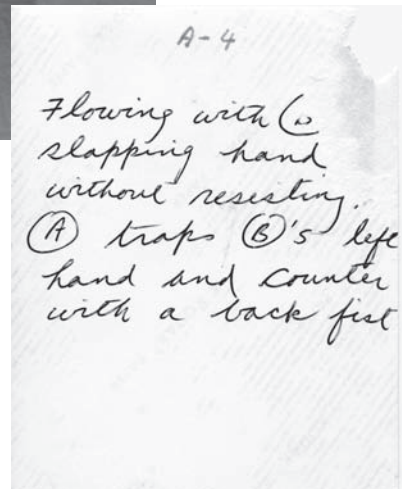 A-4
Flowing with
slapping hand
without resisting.
Ⓐ traps Ⓑ's left
hand and counter
with a back fist